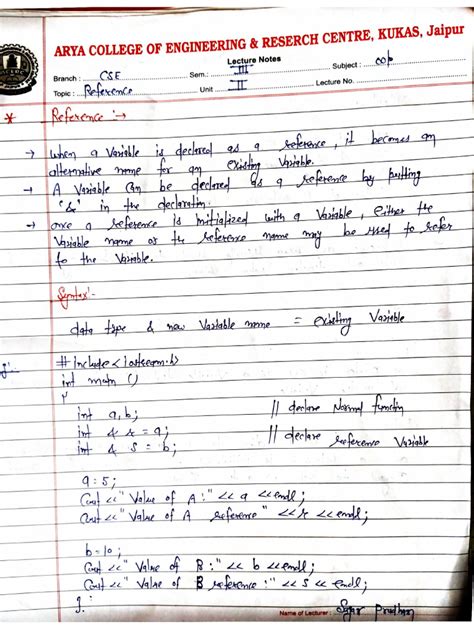 ARYA COLLEGE OF ENGINEERING & RESERCH CENTRE, KUKAS, Jaipur
Lecture Notes
Branch : CSE Sem.: III Subject : cop
Topic : Reference Unit II Lecture No.
* Reference :→
→ when a Variable is declared as a reference, it becomes an
alternative name for an existing Variable.
→ A Variable can be declared as a reference by putting
'&' in the declaration.
→ once a reference is initialized with a Variable, either the
Variable name or the reference name may be used to refer
to the Variable.
Syntax:-
data type & new Variable name = existing Variable
# include <iostream.h>
int main ()
{
int a, b; // declare Normal function
int & r = a; // declare reference Variable
int & s = b;
a = 5;
Cout << "Value of A :" << a << endl;
Cout << "Value of A reference" << r << endl;
b = 10;
Cout << "Value of B :" << b << endl;
Cout << "Value of B reference :" << s << endl;
}
Name of Lecturer :